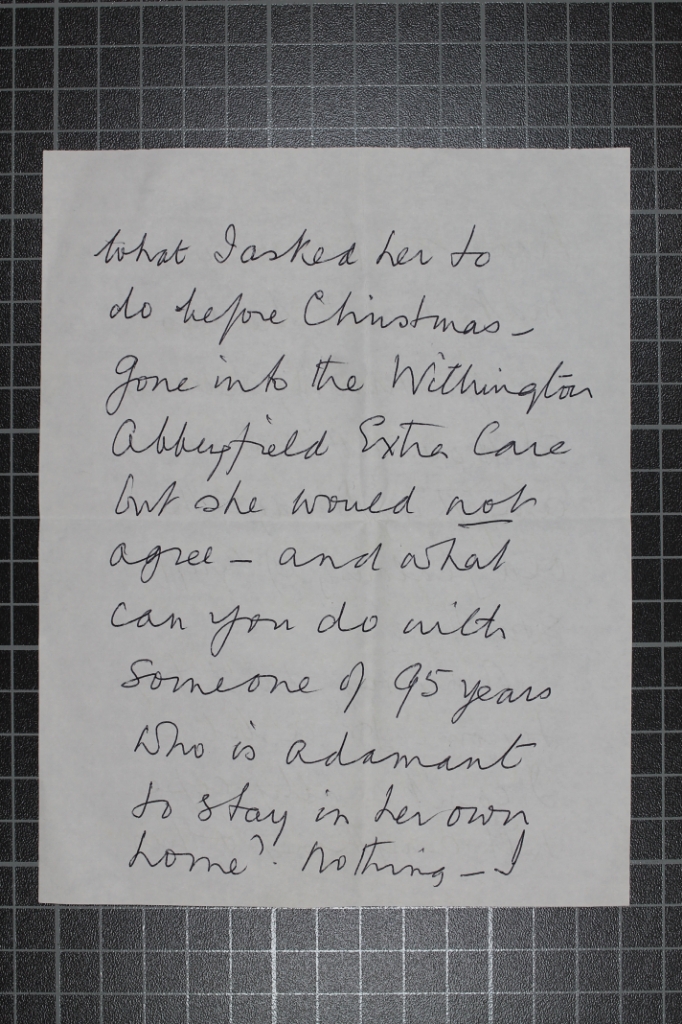 What I asked her to
do before Christmas –
gone into the Withington
Abbeyfield Extra Care
but she would not
agree – and what
can you do with
someone of 95 years
who is adamant
to stay in her own
home? Nothing – I